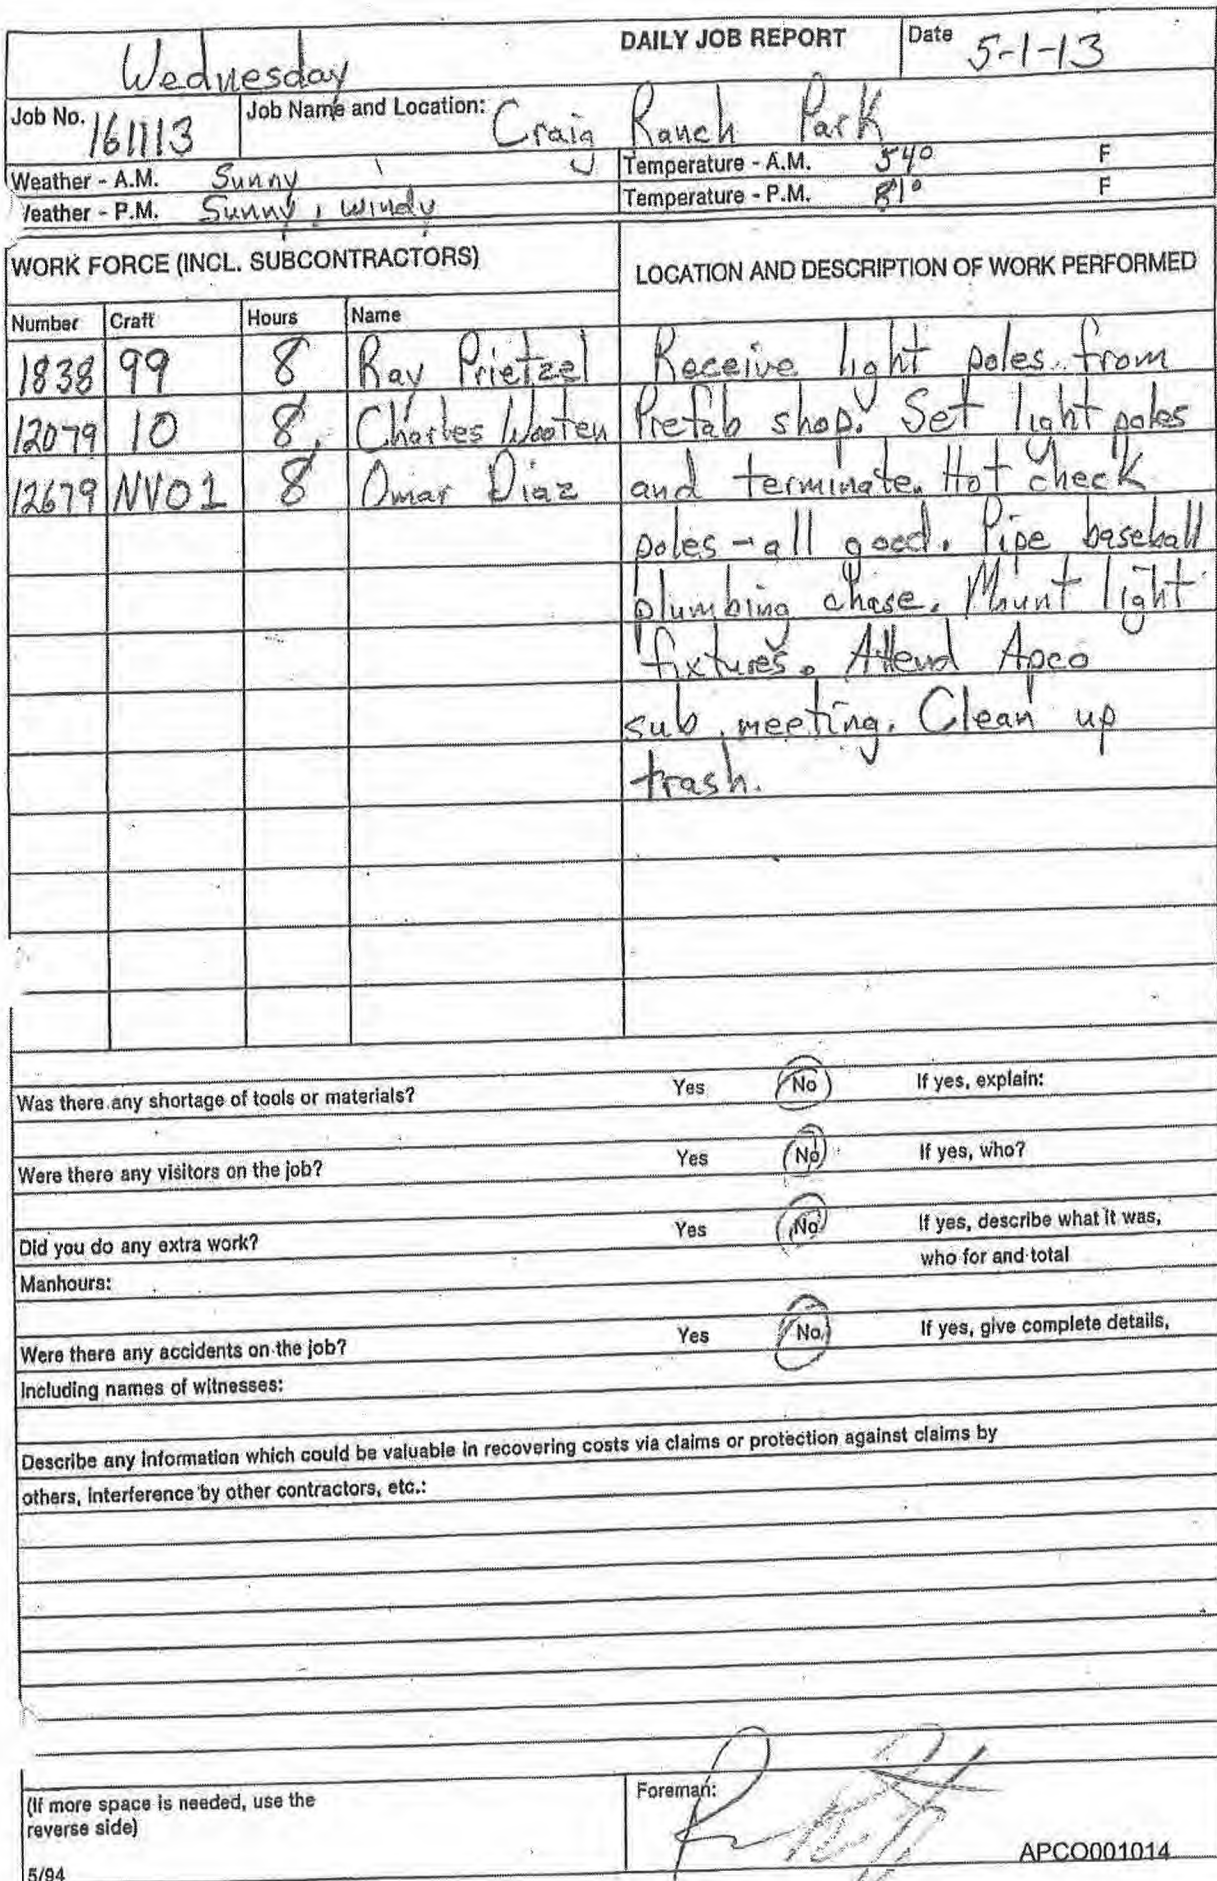 DAILY JOB REPORT
Date 5-1-13
Wednesday
Job No. 161113
Job Name and Location: Craig Ranch Park
Weather - A.M. Sunny
Temperature - A.M. 54° F
Weather - P.M. Sunny, Windy
Temperature - P.M. 81° F
WORK FORCE (INCL. SUBCONTRACTORS)
LOCATION AND DESCRIPTION OF WORK PERFORMED
Number Craft Hours Name
1838 99 8 Ray Prietzel
12079 10 8 Charles Wooten
12679 NV01 8 Omar Diaz
Receive light poles from
Prefab shop. Set light poles
and terminate. Hot check
poles - all good. Pipe baseball
plumbing chase. Mount light
fixtures. Attend Apco
sub meeting. Clean up
trash.
Was there any shortage of tools or materials? Yes No If yes, explain:
Were there any visitors on the job? Yes No If yes, who?
Did you do any extra work? Yes No If yes, describe what it was,
who for and total
Manhours:
Were there any accidents on the job? Yes No If yes, give complete details,
Including names of witnesses:
Describe any information which could be valuable in recovering costs via claims or protection against claims by
others, interference by other contractors, etc.:
(If more space is needed, use the
reverse side)
5/94
Foreman:
APCO001014